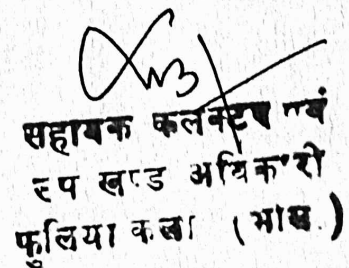 सहायक कलक्टर एवं
उप खण्ड अधिकारी
फुलिया कला (भील.)